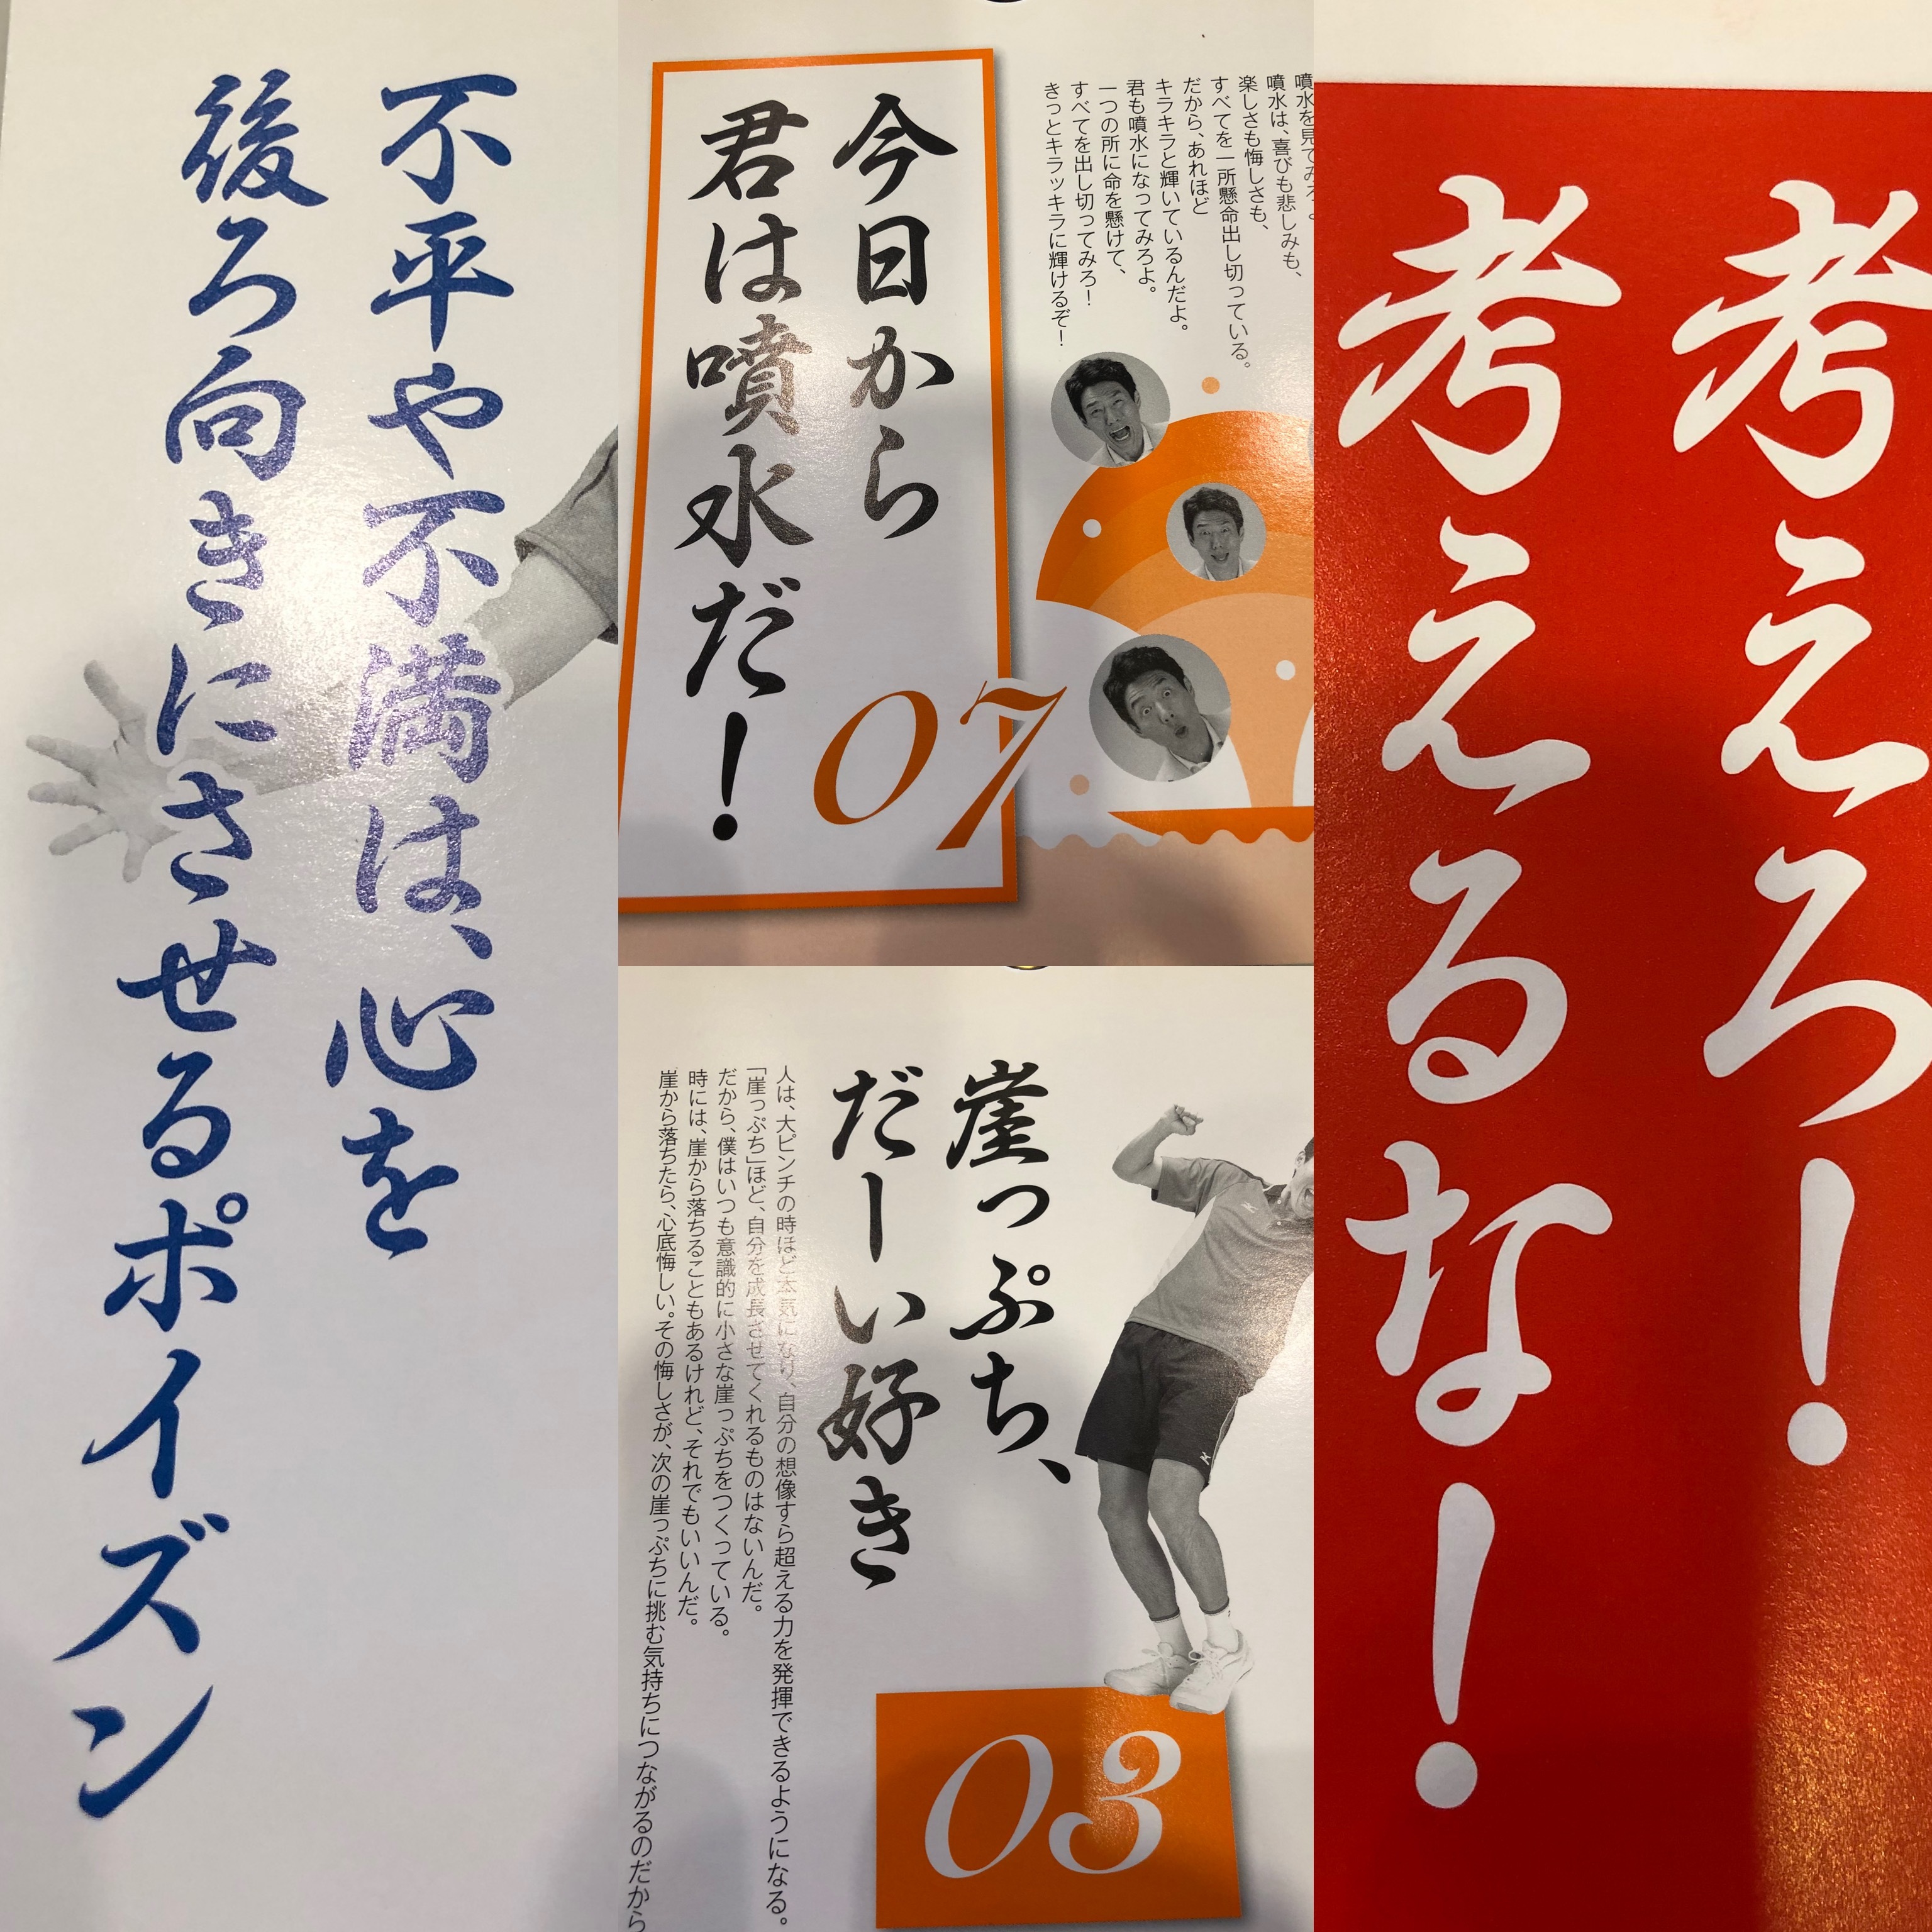 不平や不満は、心を
後ろ向きにさせるポイズン
噴水を見てみろ。
噴水は、喜びも悲しみも、
楽しさも悔しさも、
すべてを一所懸命出し切っている。
だから、あれほど
キラキラと輝いているんだよ。
君も噴水になってみろよ。
一つの所に命を懸けて、
すべてを出し切ってみろ！
きっとキラッキラに輝けるぞ！
今日から
君は噴水だ！
07
崖っぷち、
だーい好き
人は、大ピンチの時ほど本気になり、自分の想像すら超える力を発揮できるようになる。
「崖っぷち」ほど、自分を成長させてくれるものはないんだ。
だから、僕はいつも意識的に小さな崖っぷちをつくっている。
時には、崖から落ちることもあるけれど、それでもいいんだ。
崖から落ちたら、心底悔しい。その悔しさが、次の崖っぷちに挑む気持ちにつながるのだから
03
考えろ！
考えるな！